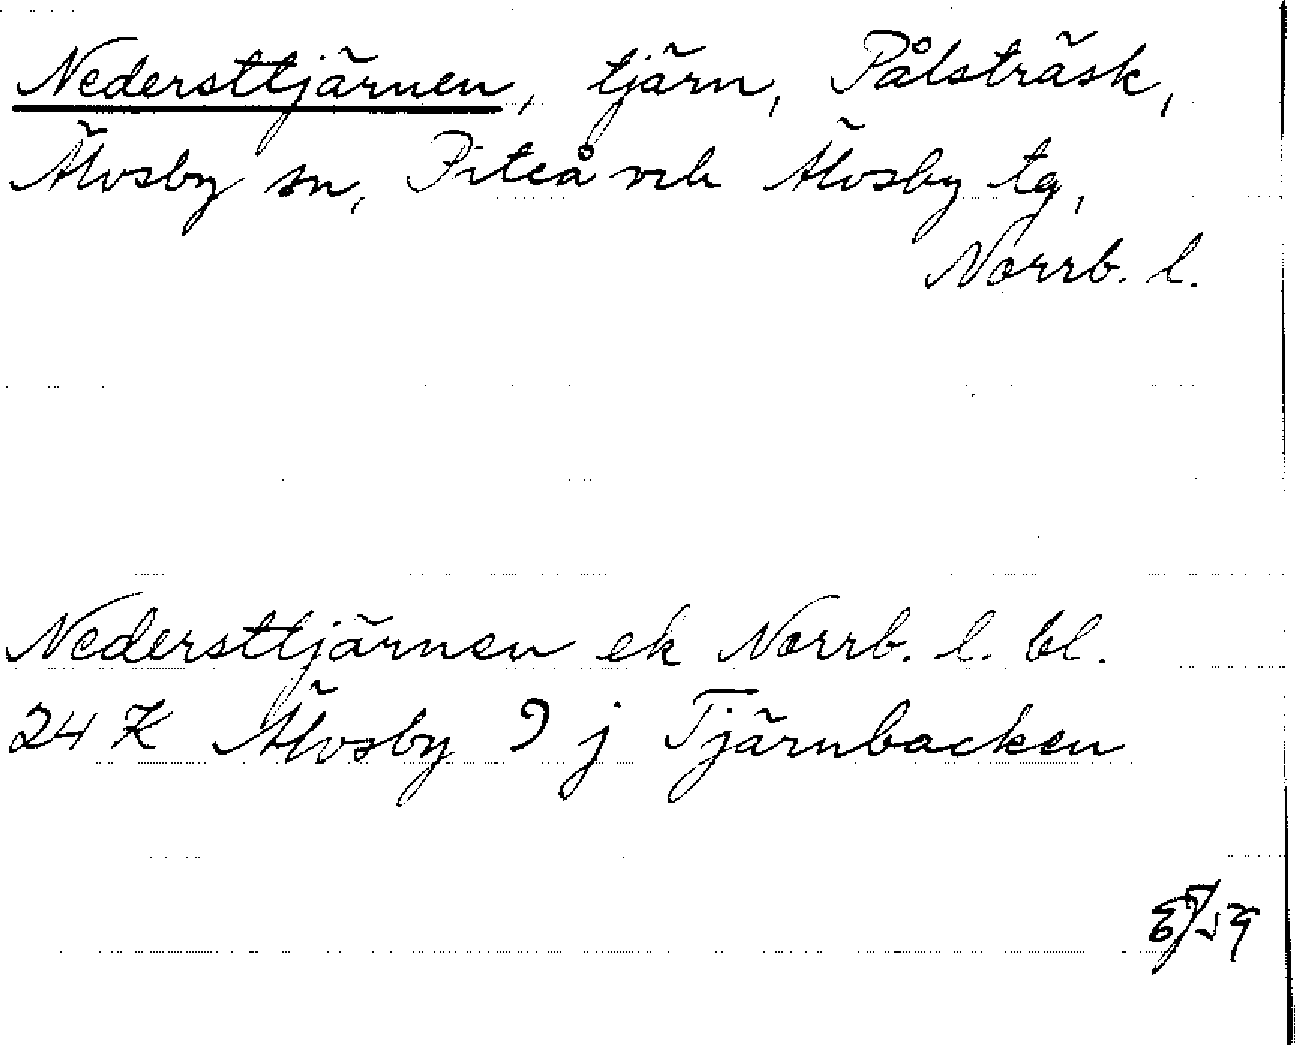 Nedersttjärnen, tjärn, Pålsträsk,
Älvsby sn, Piteå och Älvsby tg,
Norrb. l.
Nedersttjärnen ek Norrb. l. bl.
24 K Älvsby 9 j Tjärnbacken